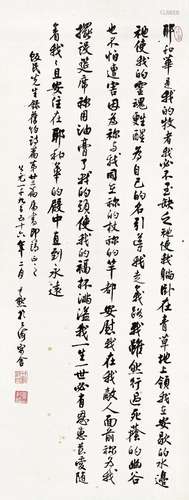 耶和華是我的牧者我必不至缺乏祂使我躺卧在青草地上領我至安歇的水邊
祂使我的靈魂甦醒為自己的名引導我走義路我雖然行過死蔭的幽谷
也不怕遭害因為祢與我同在祢的杖祢的竿都安慰我在我敵人面前祢為我
擺設筵席祢用油膏了我的頭使我的福杯滿溢我一生一世必有恩惠慈愛隨
着我我且安住在耶和華的殿中直到永遠
民先生錄舊約詩篇第廿三篇屬書即請正之
公元一九五十六年二月尹默於上海寓舍